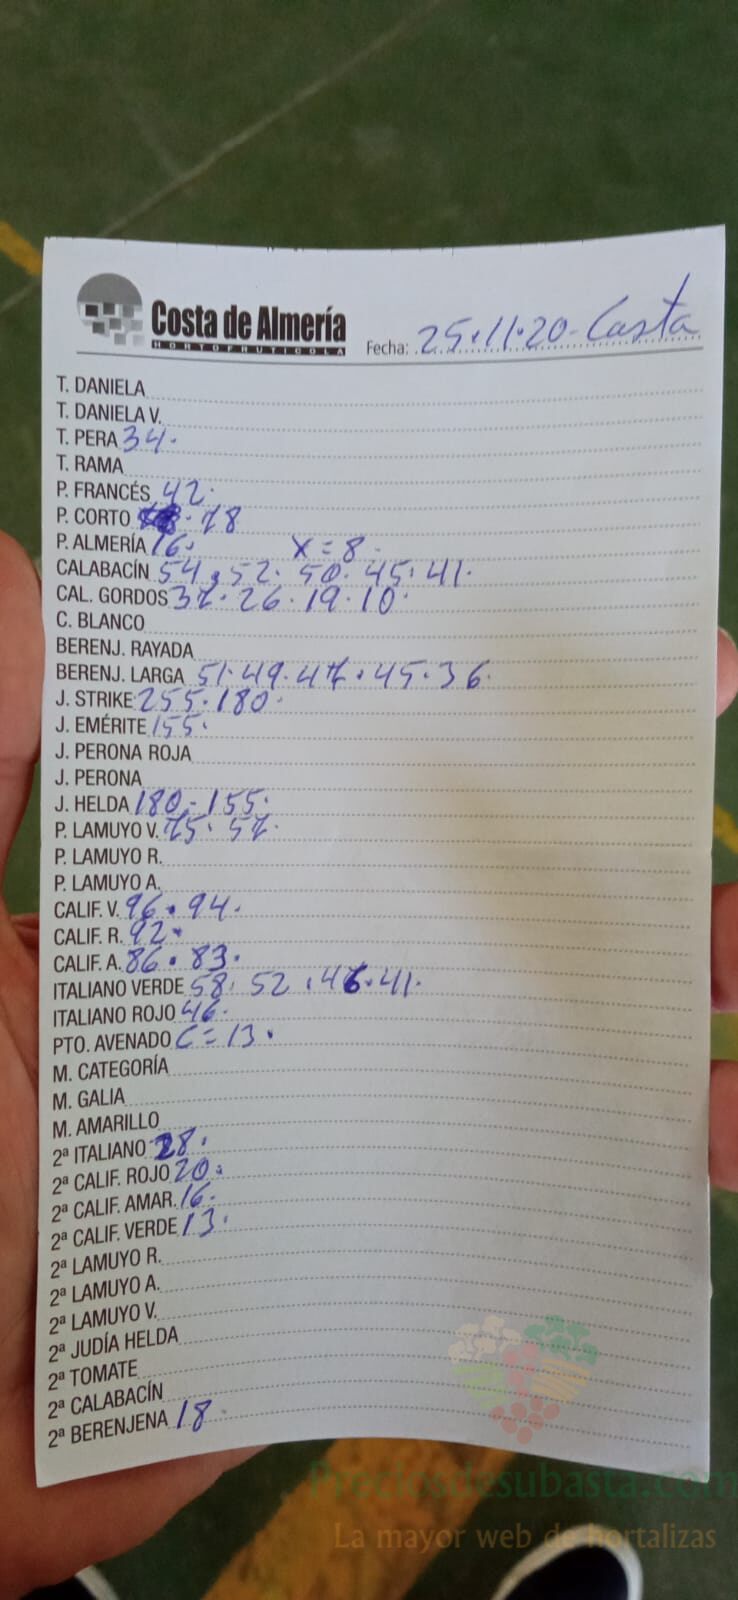 Costa de Almería
HORTOFRUTICOLA
Fecha: 25.11.20- Costa
T. DANIELA
T. DANIELA V.
T. PERA 34.
T. RAMA
P. FRANCÉS 42.
P. CORTO 78
P. ALMERÍA 16. X=8.
CALABACÍN 54, 52. 50. 45. 41.
CAL. GORDOS 37. 26. 19. 10.
C. BLANCO
BERENJ. RAYADA
BERENJ. LARGA 51. 49. 47. 45. 36.
J. STRIKE 255. 180.
J. EMÉRITE 155.
J. PERONA ROJA
J. PERONA
J. HELDA 180 - 155.
P. LAMUYO V. 75. 57.
P. LAMUYO R.
P. LAMUYO A.
CALIF. V. 96. 94.
CALIF. R. 92.
CALIF. A. 86. 83.
ITALIANO VERDE 58. 52. 46. 41.
ITALIANO ROJO 46.
PTO. AVENADO C=13.
M. CATEGORÍA
M. GALIA
M. AMARILLO
2ª ITALIANO 28.
2ª CALIF. ROJO 20.
2ª CALIF. AMAR. 16.
2ª CALIF. VERDE 13.
2ª LAMUYO R.
2ª LAMUYO A.
2ª LAMUYO V.
2ª JUDÍA HELDA
2ª TOMATE
2ª CALABACÍN
2ª BERENJENA 18.
Preciosdesubasta.com
La mayor web de hortalizas